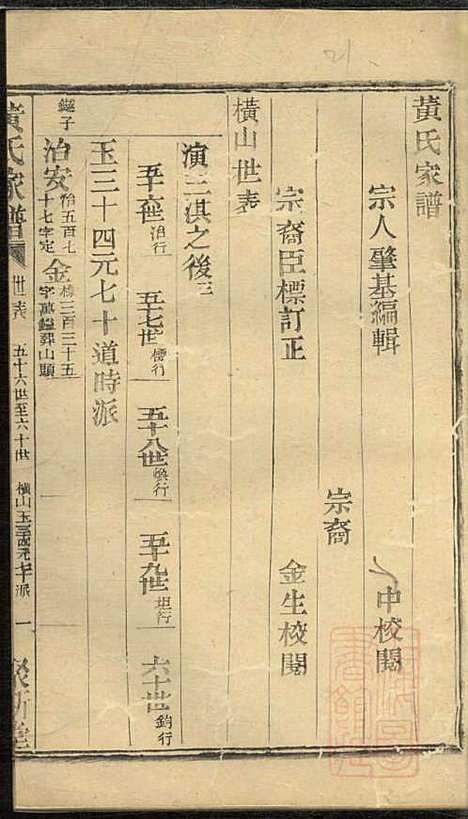 黃氏家譜
宗人肇基編輯
中校閱
宗裔
宗裔臣標訂正
金生校閱
橫山世表
演三淇之後三
五十六世治行
五十七世標行
五十八世煥行
五十九世坦行
六十世鈞行
玉三十四元七十道時派
鎰子
治安
治五百七
十七字定
金
標三百三十五
字萬鎰葬山頭
黃氏家譜
世表
五十六世至六十世
橫山玉三十四元七十派
一